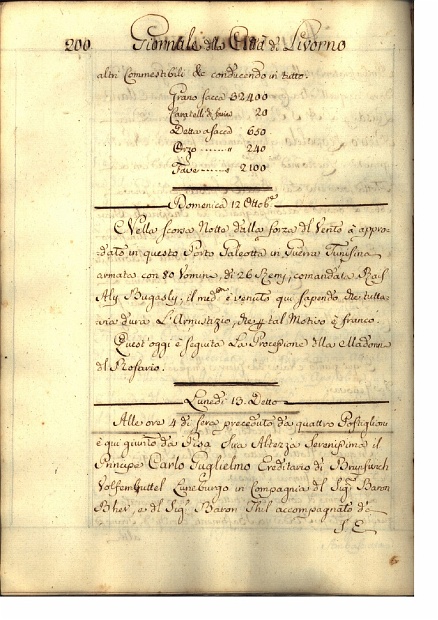 200 Giornale della Città di Livorno
altri Commestibili &c conducendo in tutto.
Grano sacca 32400
Caratelli di 20
Detto a sacca 650
Orzo " 240
Fave " 2100
Domenica 12 Ottobre
Nella scorsa Notte dalla forza del Vento è appro-
dato in questo Porto Galeotta in Guerra Tunisina
armata con 80 Uomini, di 26 Remj, comandata Rais
Aly Bugasly, il med.mo è venuto qui sapendo che tutta-
via dura L'Armistizio, che p tal Motivo è franco.
Quest'oggi è seguita La Processione della Madonna
del Rosario.
Lunedì 13. Detto
Alle ore 4 di sera preceduto da quattro Postiglioni
è qui giunto da Pisa Sua Altezza Serenissima il
Principe Carlo Guglielmo Ereditario di Brunswch
Volfembuttel Luneburgo in Compagnia del Sigr Baron
Bher, e del Sigr Baron Thil accompagnato da
S. E.